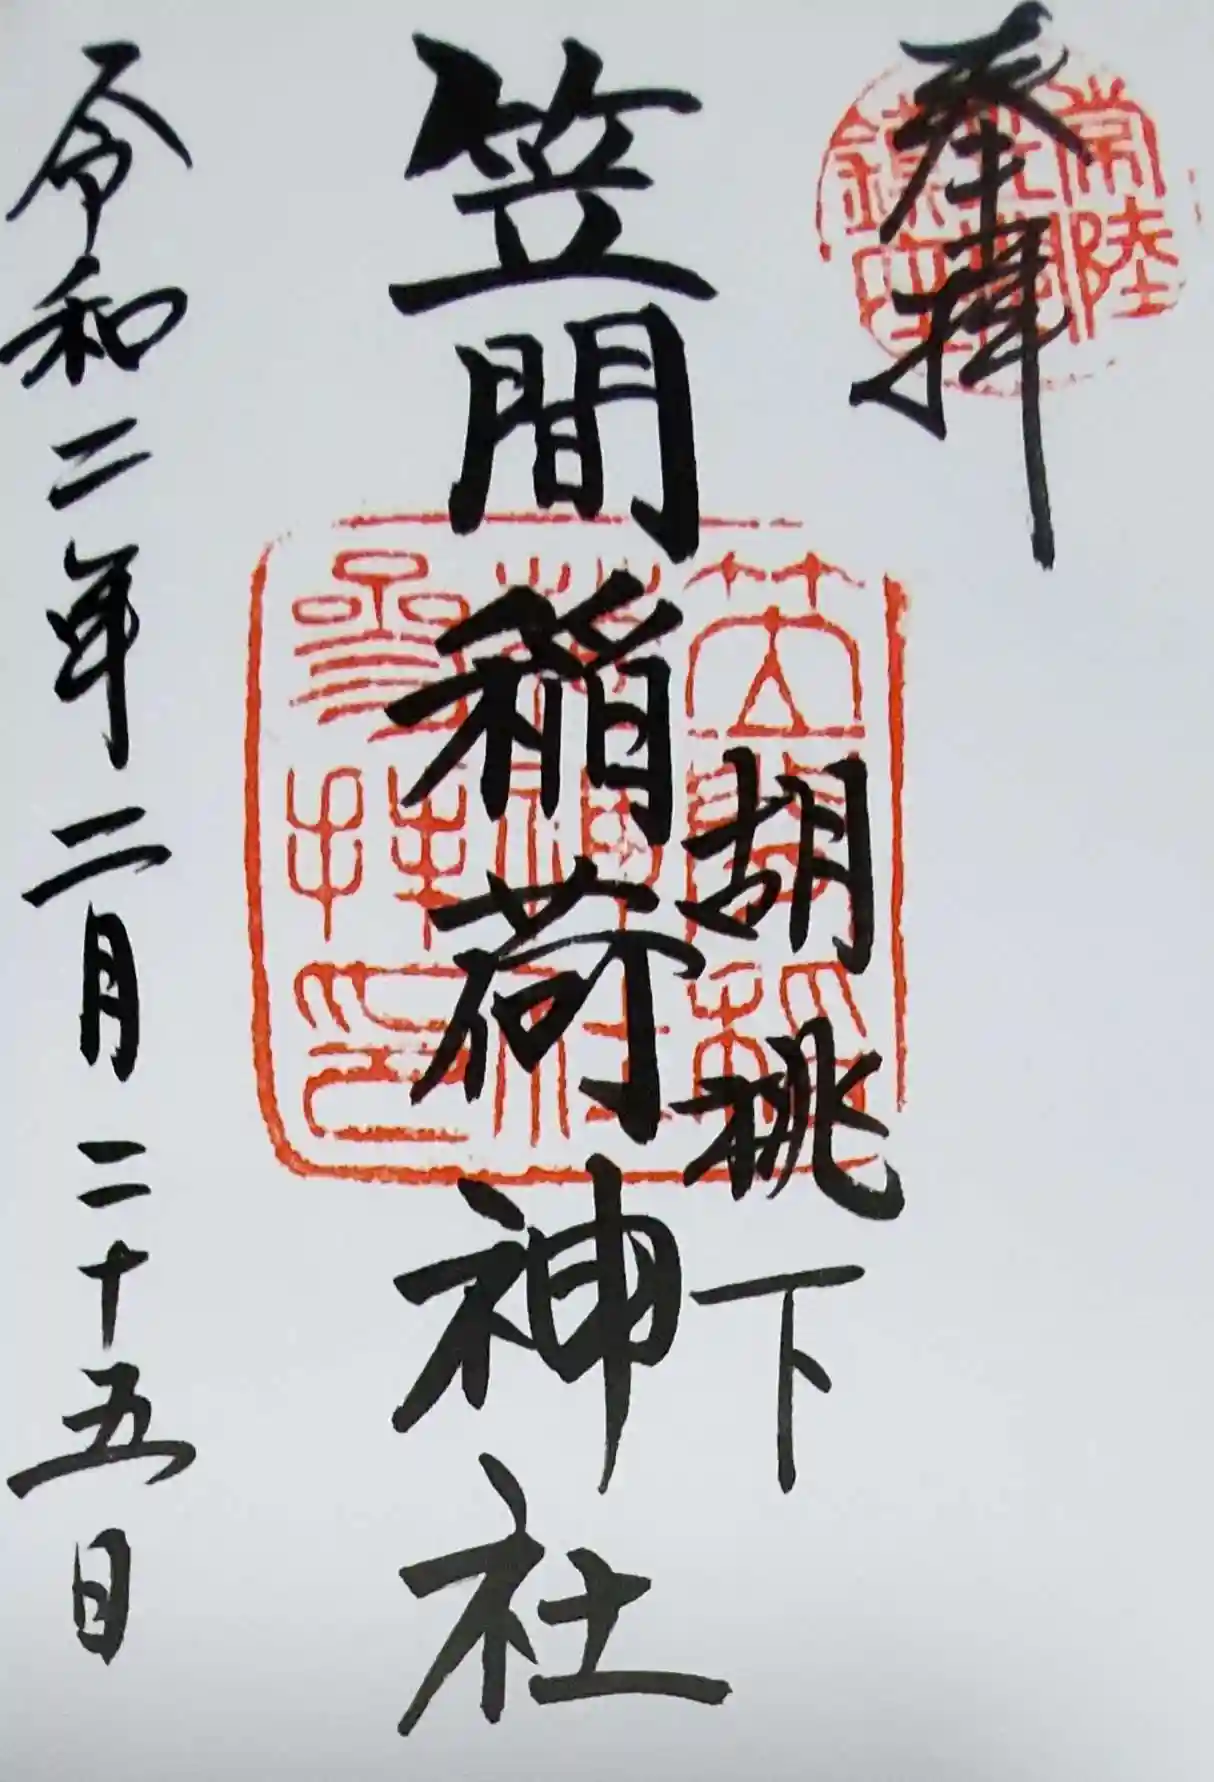 奉拝
常陸
鎮座
胡桃下
笠間稲荷神社
笠間稲荷神社参拝印
令和二年二月二十五日